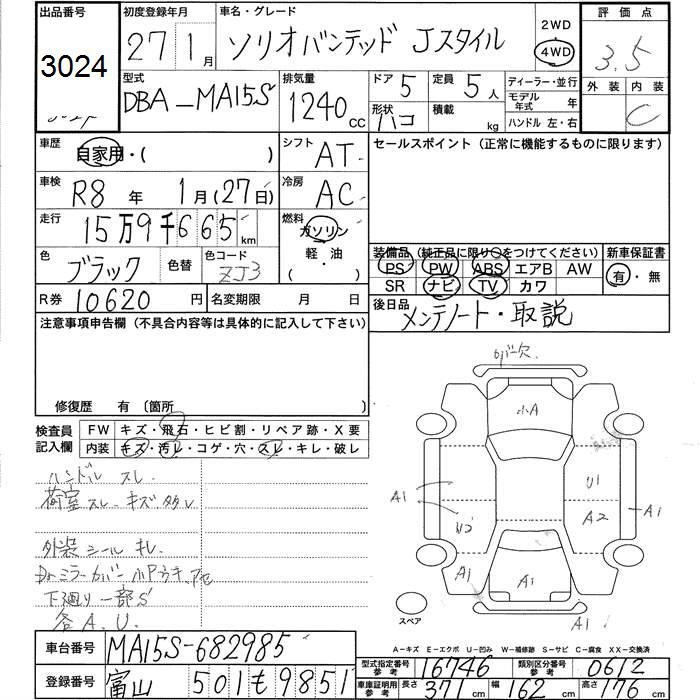 出品番号
3024
初度登録年月
27 1月
車名・グレード
ソリオバンテッド Jスタイル
2WD
4WD
評価点
3.5
外装 内装
C
型式
DBA-MA15S
排気量
1240cc
ドア 5
定員 5人
形状 ハコ
積載 kg
ディーラー・並行
モデル年式 年
ハンドル 左・右
車歴
自家用・( )
シフト AT
セールスポイント(正常に機能するものに限ります)
車検
R8年 1月(27日)
冷房 AC
走行
15万9千665km
燃料
ガソリン・軽油・( )
色 ブラック
色替
色コード ZJ3
R券 10620円
名変期限 月 日
装備品(純正品に限り○をつけてください)
PS PW ABS エアB AW
SR ナビ TV カワ
新車保証書
有・無
後日品
メンテノート・取説
注意事項申告欄(不具合内容等は具体的に記入して下さい)
修復歴 有〔箇所
検査員記入欄
FW キズ・飛石・ヒビ割・リペア跡・X要
内装 キズ・汚レ・コゲ・穴・スレ・キレ・破レ
ハンドル スレ
荷室 スレ キズ 多レ
外装 シール キレ
Drミラーカバー 小Pウキ
下廻り 一部S
各A.U.
カバー欠
小A
A1
U1
U2
A2
A1
A1
A1
A1
スペア
A-キズ E-エクボ U-凹み W-補修跡 S-サビ C-腐食 XX-交換済
車台番号
MA15S-682985
登録番号
富山 501 も 9851
型式指定番号 参考 16746
類別区分番号 参考 0612
車庫証明用 参考 長さ 371cm 幅 162cm 高さ 176cm